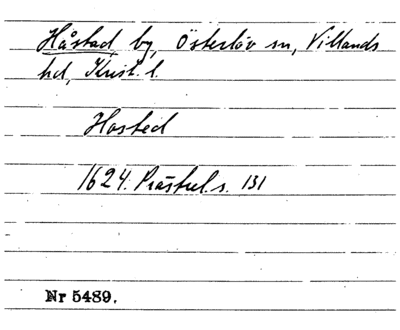 Håstad by, Österlöv sn, Villands
hd, Krist. l.
Hosted
1624. Prästrel. s. 131
Nr 5489.